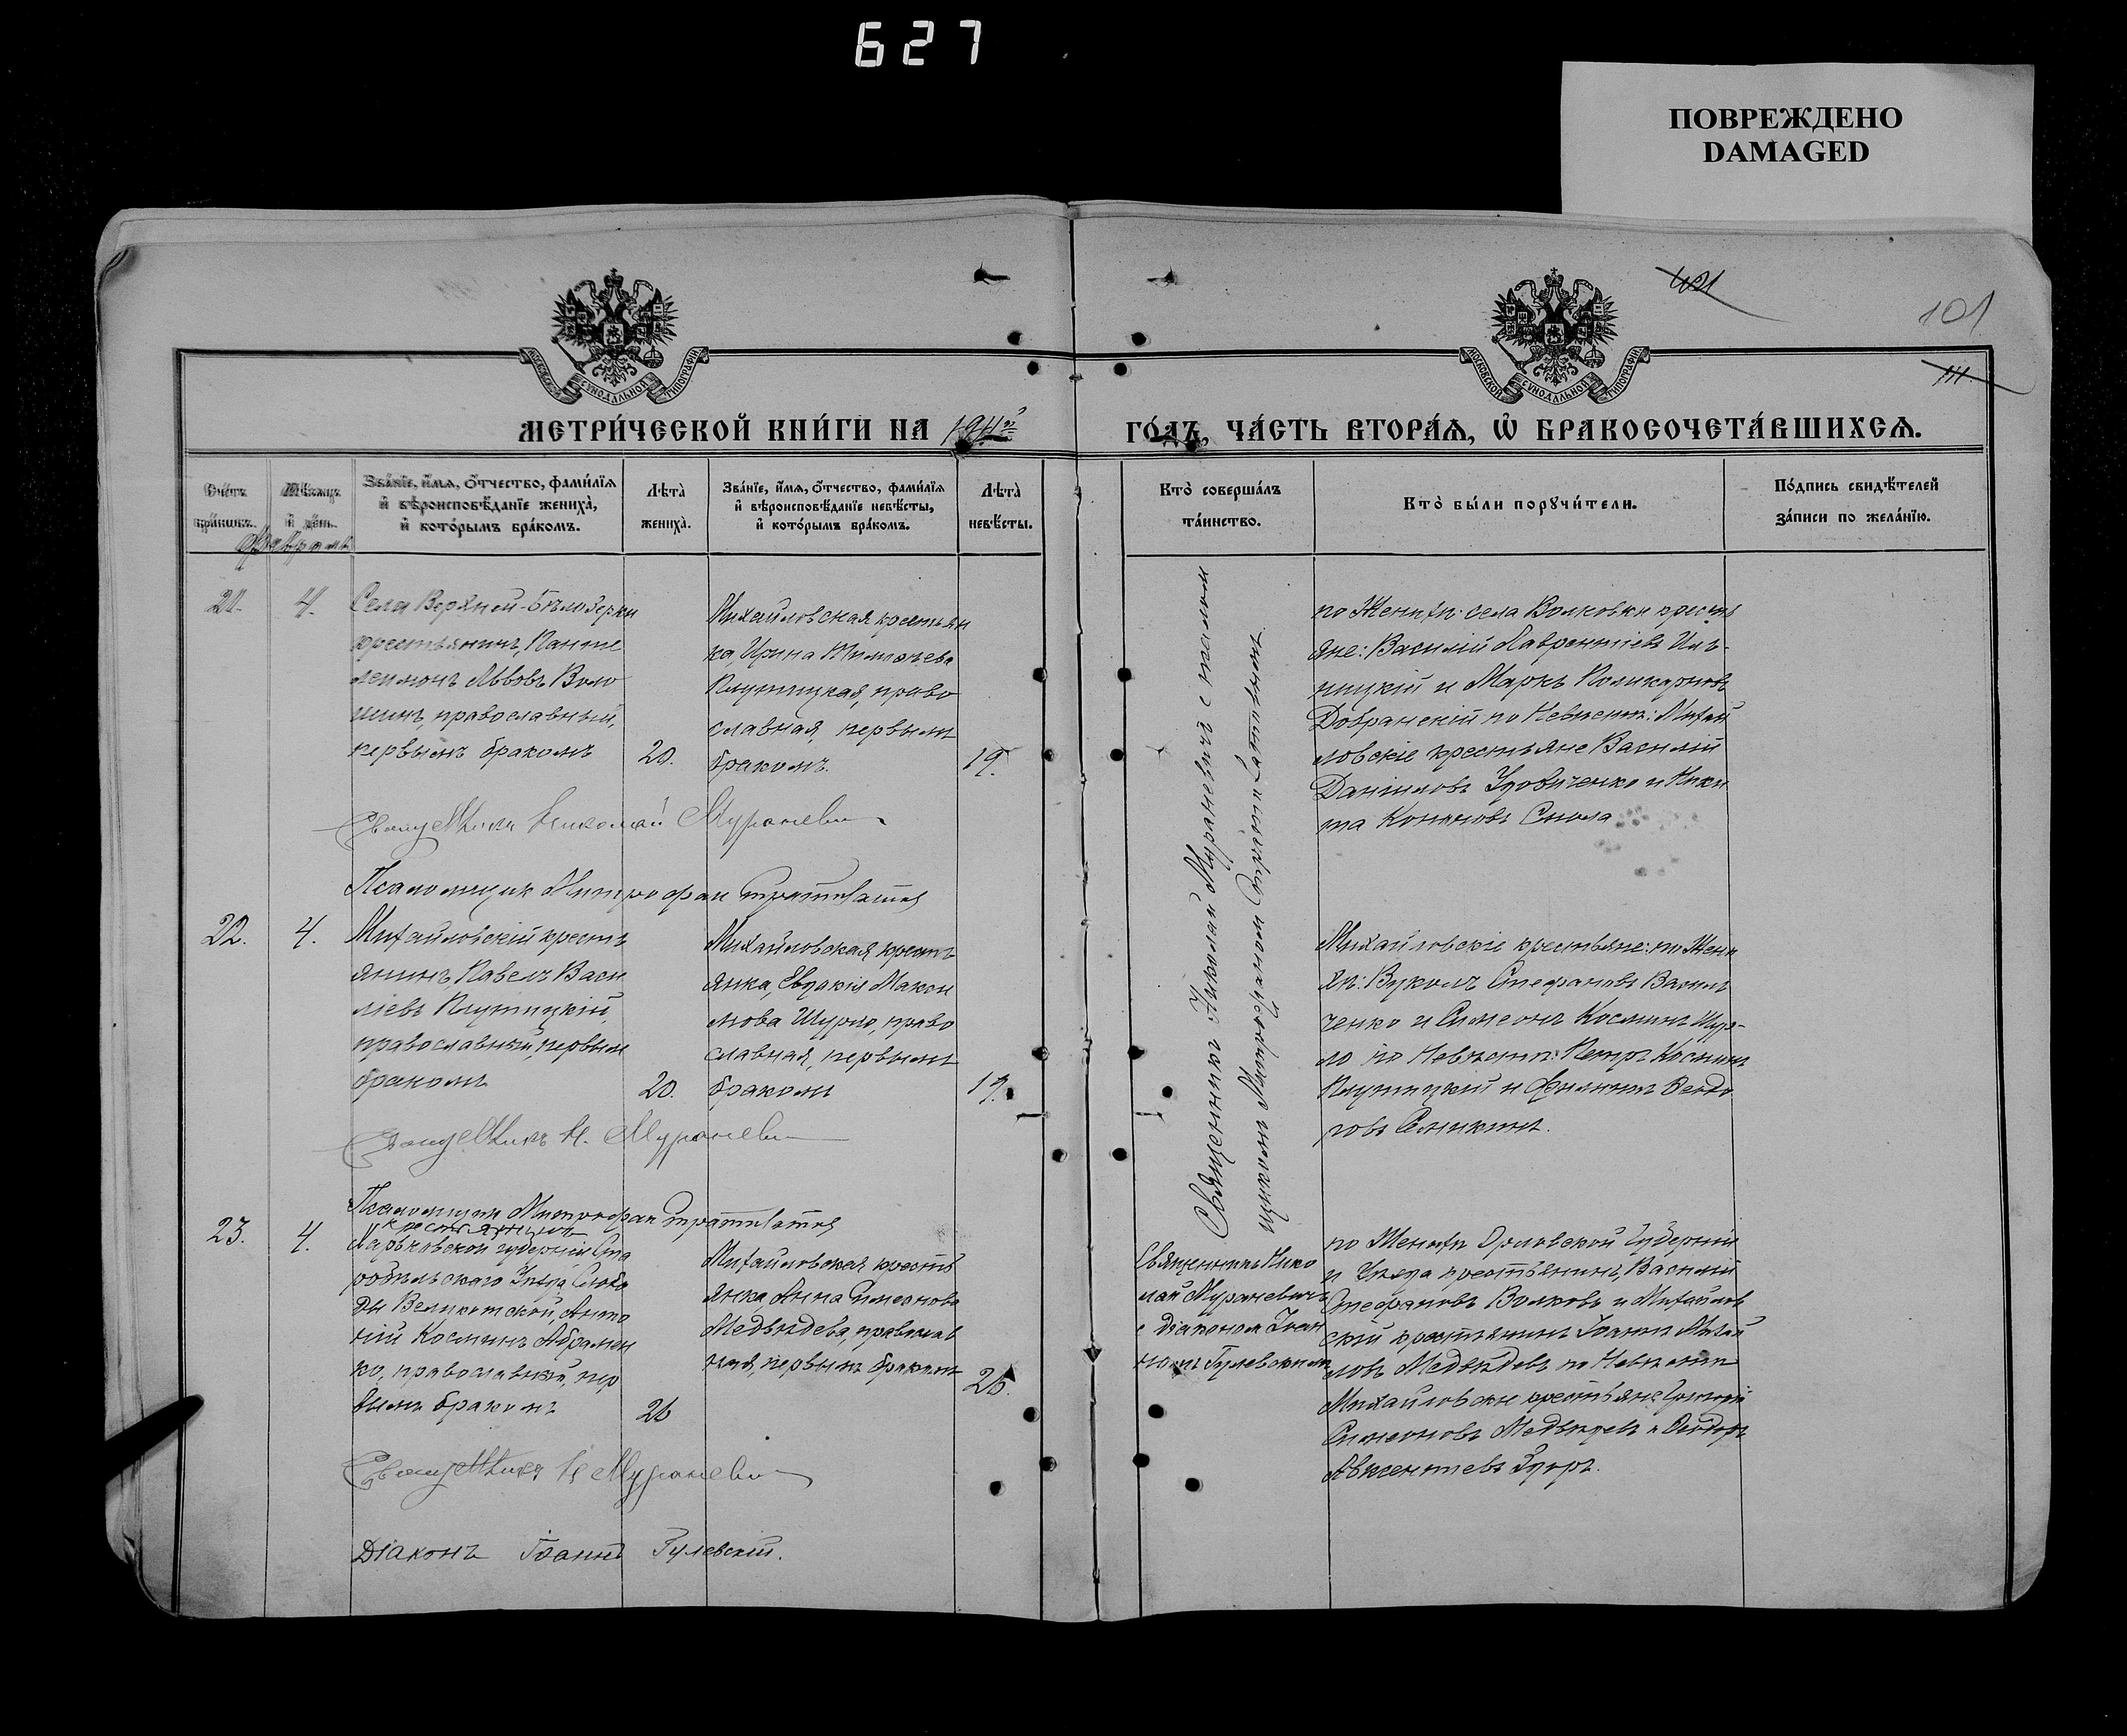 627
ПОВРЕЖДЕНО
DAMAGED
421
101
111
МОСКОВСКОЙ СѴНОДАЛЬНОЙ ТИПОГРАФІИ
МОСКОВСКОЙ СѴНОДАЛЬНОЙ ТИПОГРАФІИ
МЕТРИ́ЧЕСКОЙ КНИ́ГИ НА 1911й ГО́ДЪ, ЧА́СТЬ ВТОРА́Ѧ, Ѡ БРАКОСОЧЕТА́ВШИХСѦ.
Счётъ бра́кωвъ.
Мѣ́сяцъ и́ день.
Февраль
Зва́нїе, и́мѧ, ѻ́тчество, фами́лїѧ
и҆ вѣроисповѣ́данїе жениха̀,
и҆ кото́рымъ бра́комъ.
Лѣта̀
жениха̀.
Зва́нїе, и́мѧ, ѻ́тчество, фами́лїѧ
и҆ вѣроисповѣ́данїе невѣ́сты,
и҆ кото́рымъ бра́комъ.
Лѣта̀
невѣ́сты.
Кто̀ соверша́лъ
та́инство.
Кто̀ бы́ли порꙋчи́тели.
По́дпись свидѣ́телей
за́писи по жела́нїю.
21.
4.
Села Верхней-Бѣлозерки
крестьянинъ, Панте
леимонъ Львовъ Воло
шинъ, православный,
первымъ бракомъ
20.
Михайловская крестьян
ка, Ирина Тимоѳеева
Плутицкая, право
славная, первымъ
бракомъ.
19.
Священникъ Николай Мураневичъ с псалом
щикомъ Митрофаном
по Женихѣ: села Волковки кресть
яне: Василій Лаврентіевъ Иль-
ницкій и Маркъ Поликарповъ
Добранскій по Невѣстѣ: Михай
ловскіе крестьяне Василій
Даніиловъ Удовиченко и Ники
та Кононовъ
Священникъ Николай Мураневич
Псаломщик Митрофан
22.
4.
Михайловскій кресть
янинъ, Павелъ Васи
ліевъ Плутицкій,
православный, первым
бракомъ
20.
Михайловская кресть
янка, Евдокія Макси
мова Шурло, право
славная, первымъ
бракомъ
19.
Михайловскіе крестьяне: по Жени
хѣ: Вуколъ Стефановъ Васил
ченко и Симеонъ Космин Шур-
ло по Невѣстѣ: Петръ Косминъ
Плутицкій и Филиппъ Ѳеодо
ровъ
Священникъ Н. Мураневич
Псаломщик Митрофан
23.
4.
крестьянинъ
Харьковской губерніи Ста
робѣльскаго Уѣзда, Слобо
ды Великотской, Анто
ній Косминъ Абрамен
ко, православный, пер
вымъ бракомъ
26
Михайловская кресть
янка, Анна Симеонова
Медвѣдева, православ
ная, первымъ бракомъ
26.
Священникъ Нико
лай Мураневичъ
с діаконом Іоан
номъ Гулевскимъ
по Женихѣ Орловской Губерніи
и Уѣзда крестьянинъ, Василій
Стефановъ Волковъ и Михайлов
скій крестьянинъ Іоаннъ Михай
ловъ Медвѣдевъ по Невѣстѣ
Михайловскіе крестьяне Григорій
Симеоновъ Медвѣдевъ и Ѳеодоръ
Авксентіевъ
Священникъ Н Мураневич
Діаконъ Іоаннъ Гулевскій.